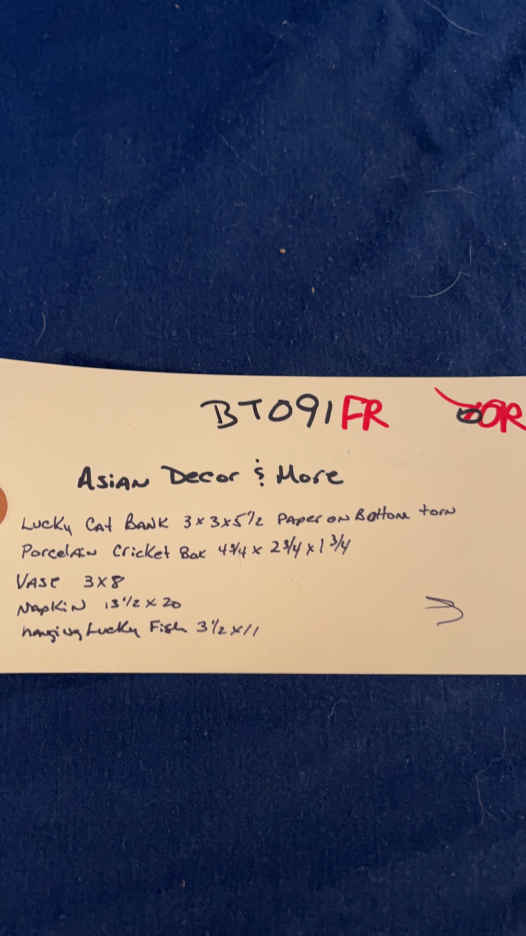 BT091FR
OR
Asian Decor & More
Lucky Cat Bank 3x3x5 1/2 Paper on Bottom torn
Porcelain Cricket Box 4 3/4 x 2 3/4 x 1 3/4
Vase 3x8
Napkin 13 1/2 x 20
hanging Lucky Fish 3 1/2 x 11